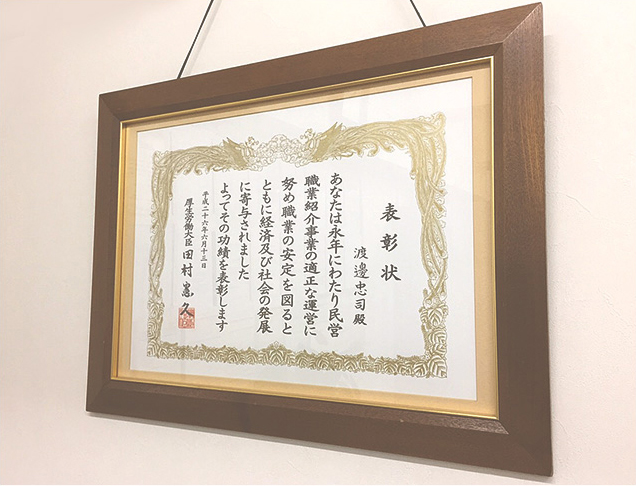 表彰状
渡邊忠司殿
あなたは永年にわたり民営
職業紹介事業の適正な運営に
努め職業の安定を図ると
ともに経済及び社会の発展
に寄与されました
よってその功績を表彰します
平成二十六年六月十三日
厚生労働大臣 田村憲久